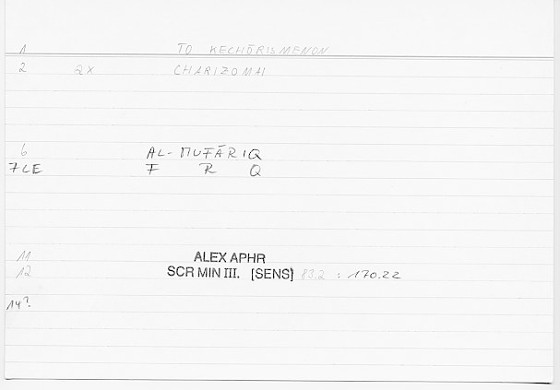 1 TO KECHŌRISMENON
2 2x CHARIZOMAI
6 AL-MUFĀRIQ
7LE F R Q
11 ALEX APHR
12 SCR MIN III. [SENS] 83.2 : 170.22
14?